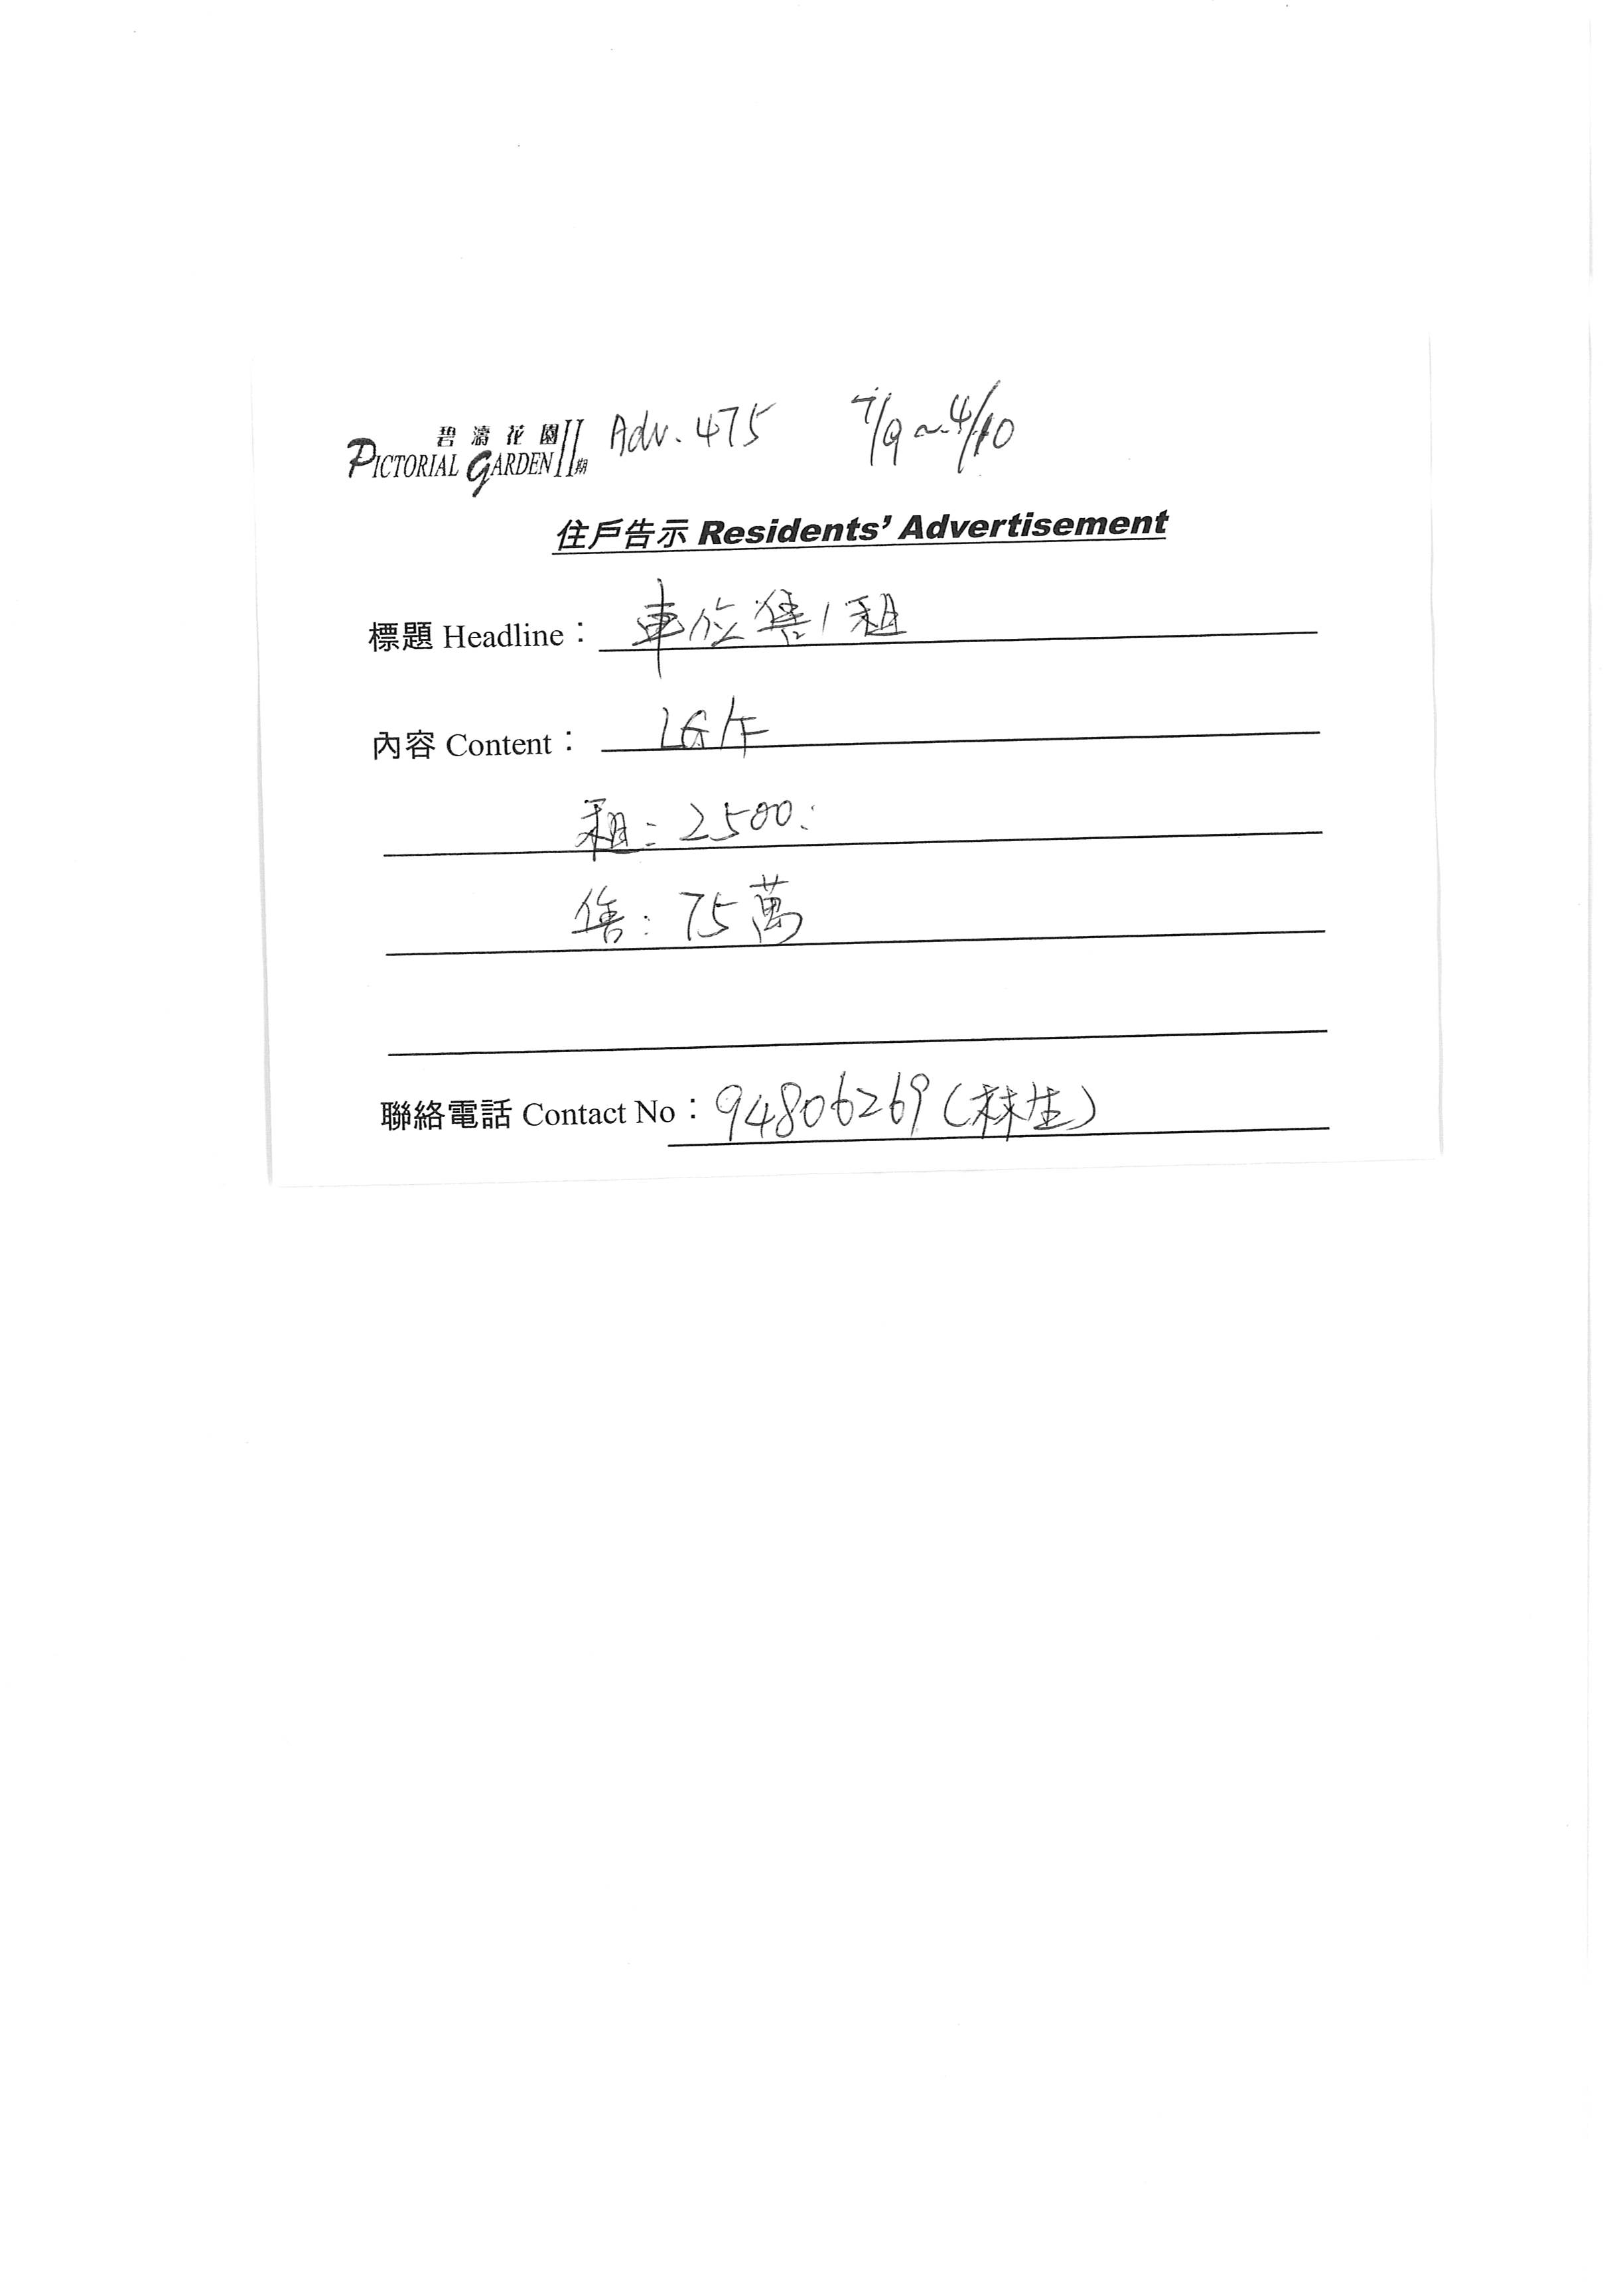 碧濤花園II期 Adv. 475 7/9~4/10
PICTORIAL GARDEN
住戶告示 Residents' Advertisement
標題 Headline： 車位售/租
內容 Content： LG/F
租: 2500:
售: 75萬
聯絡電話 Contact No： 94806269 (林生)